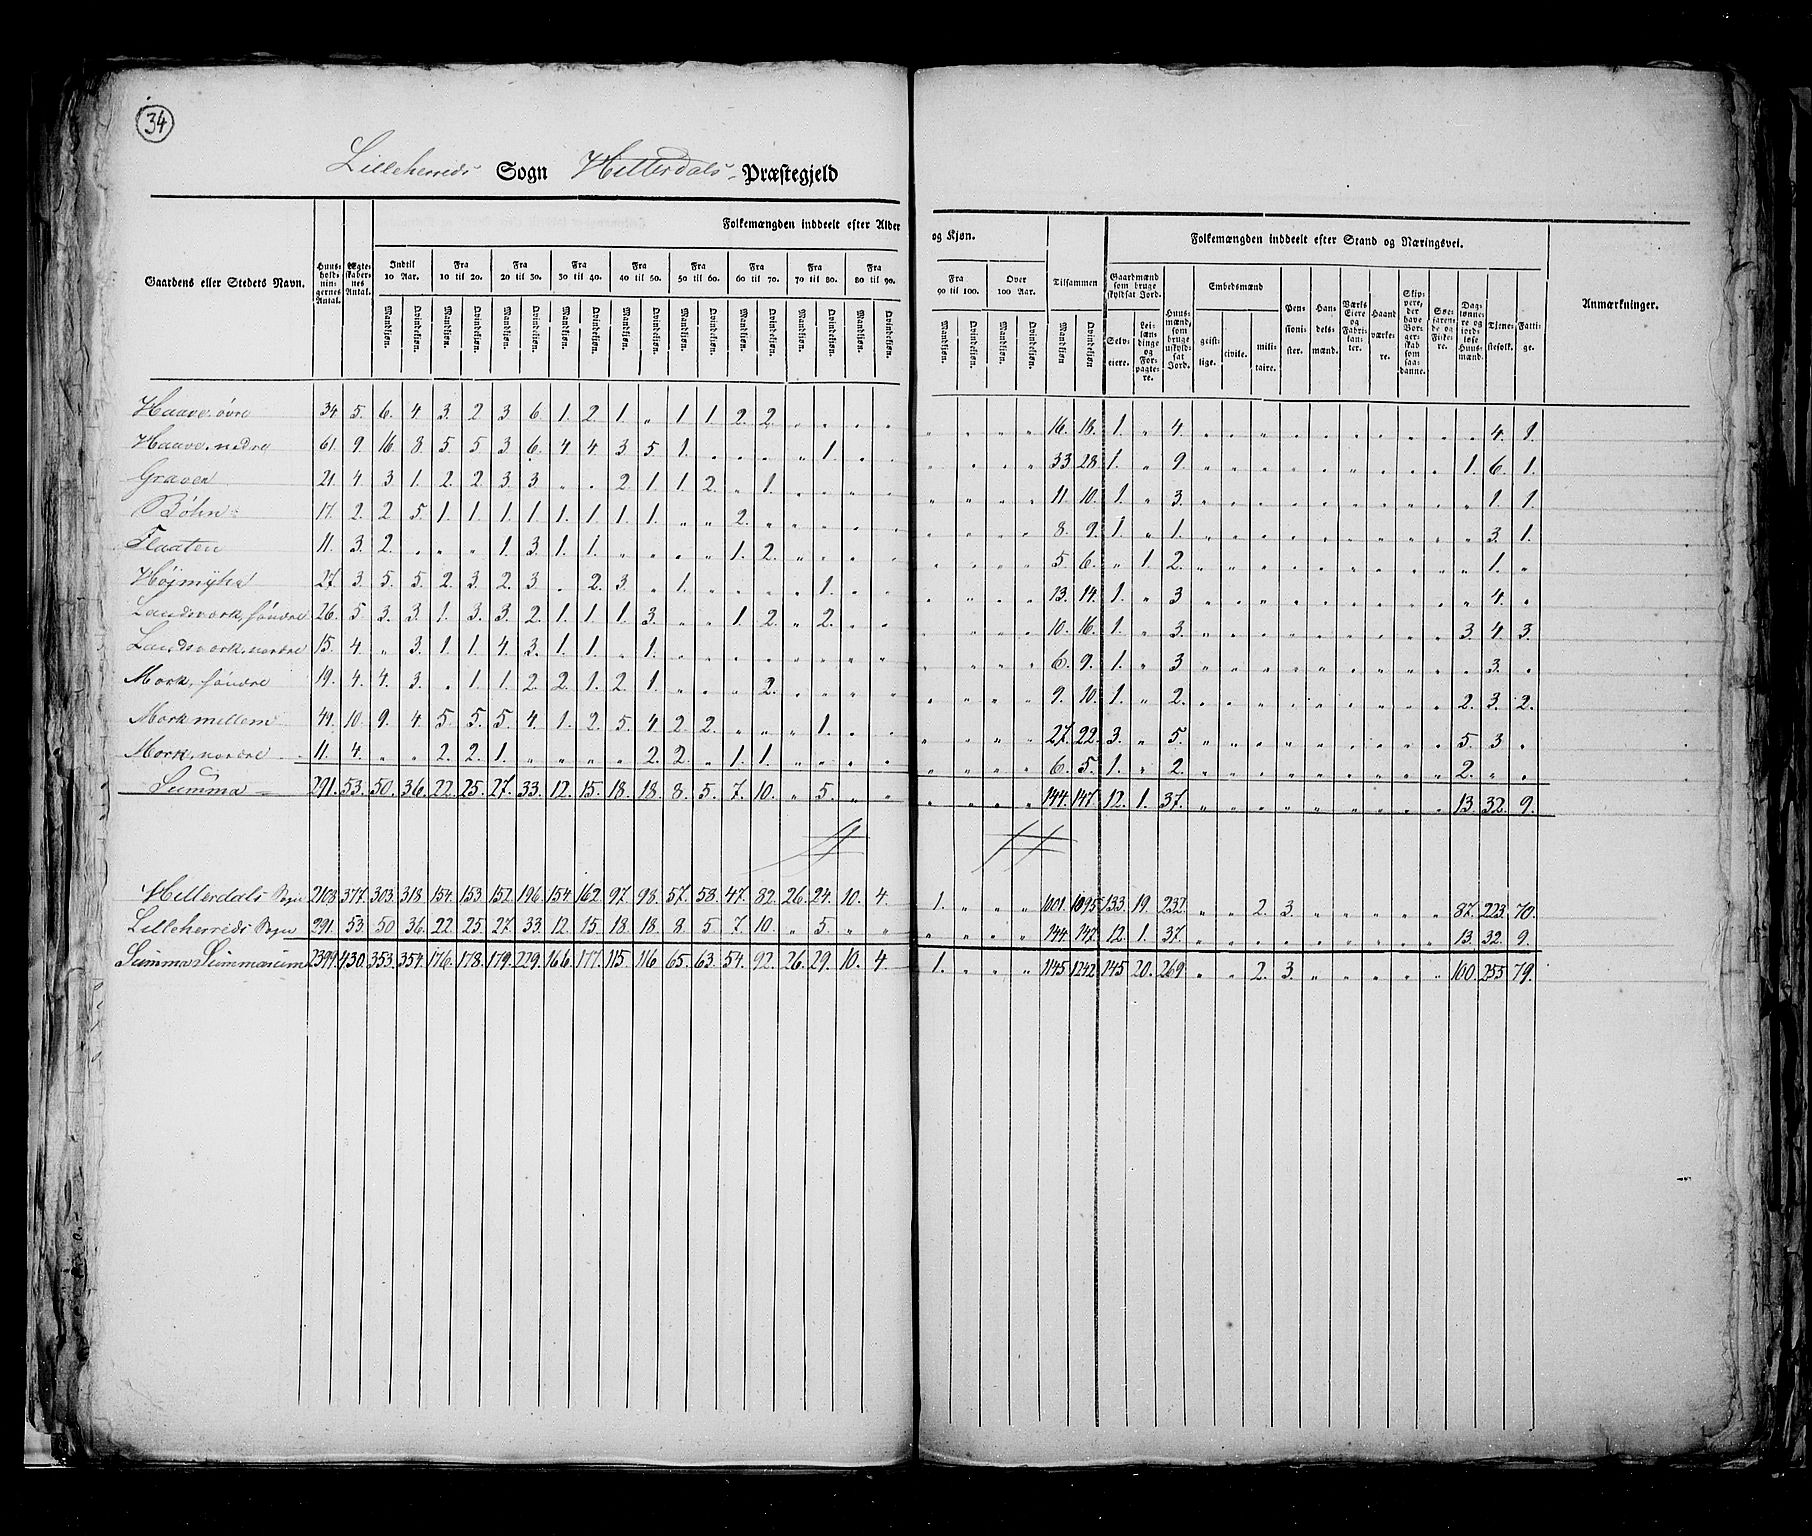 34
Lilleherreds Sogn Hitterdals Præstegjeld
Folkemængden inddeelt efter Alder og Kjøn. Folkemængden inddeelt efter Stand og Næringsvei.
Gaardens eller Stedets Navn. Huusholdningernes Antal. Ægteskabernes Antal. Indtil 10 Aar. Fra 10 til 20. Fra 20 til 30. Fra 30 til 40. Fra 40 til 50. Fra 50 til 60. Fra 60 til 70. Fra 70 til 80. Fra 80 til 90. Fra 90 til 100. Over 100 Aar. Tilsammen Gaardmænd som bruge skyldsat Jord. Huusmænd, som bruge uskyldsat Jord. Embedsmænd Pensionister. Handelsmænd. Værks Eiere og Fabrikanter. Haandværkere. Skippere, der have Borgerskab som saadanne. Søefarende og Fiskere. Daglønnere og jordløse Huusmænd. Tjenestefolk. Fattige. Anmærkninger.
Mandkjøn. Qvindekjøn. Mandkjøn. Qvindekjøn. Mandkjøn. Qvindekjøn. Mandkjøn. Qvindekjøn. Mandkjøn. Qvindekjøn. Mandkjøn. Qvindekjøn. Mandkjøn. Qvindekjøn. Mandkjøn. Qvindekjøn. Mandkjøn. Qvindekjøn. Mandkjøn. Qvindekjøn. Mandkjøn. Qvindekjøn. Mandkjøn Qvindekjøn Selveiere. Leilændinge og Forpagtere. geistlige. civile. militaire.
Haave, øvre 34 5. 6. 4. 3. 2. 3. 6. 1. 2. 1. „ 1. 1. 2. 2. „ „ „ „ „ „ „ „ 16. 18. 1. „ 4. „ „ „ „ „ „ „ „ „ „ 4. 1.
Haave, nedre 61. 9. 16. 8. 5. 5. 3. 6. 4. 4. 3. 5. 1. „ „ „ „ 1. „ „ „ „ „ „ 33. 28. 1. „ 9. „ „ „ „ „ „ „ „ „ 1. 6. 1.
Graver 21. 4. 3. 1. 2. 2. 3. 3. „ „ 2. 1. 1. 2. „ 1. „ „ „ „ „ „ „ „ 11. 10. 1. „ 3. „ „ „ „ „ „ „ „ „ „ 1. 1.
Bøhn 17. 2. 2. 5. 1. 1. 1. 1. 1. 1. 1. 1. „ „ 2. „ „ „ „ „ „ „ „ „ 8. 9. 1. „ 1. „ „ „ „ „ „ „ „ „ „ 3. 1.
Flaaten 11. 3. 2. „ „ „ 1. 3. 1. 1. „ „ „ „ 1. 2. „ „ „ „ „ „ „ „ 5. 6. „ 1. 2. „ „ „ „ „ „ „ „ „ „ 1. „
Højmyhr 27. 3. 5. 5. 2. 3. 2. 3. „ 2. 3. „ 1. „ „ „ „ 1. „ „ „ „ „ „ 13. 14. 1. „ 3. „ „ „ „ „ „ „ „ „ „ 4. „
Landsverk, søndre 26. 5. 3. 3. 1. 3. 3. 2. 1. 1. 1. 3. „ „ 1. 2. „ 2. „ „ „ „ „ „ 10. 16. 1. „ 3. „ „ „ „ „ „ „ „ „ 3. 4. 3.
Landsverk, nordre 15. 4. „ 3. 1. 1. 4. 3. 1. 1. „ 1. „ „ „ „ „ „ „ „ „ „ „ „ 6. 9. 1. „ 3. „ „ „ „ „ „ „ „ „ „ 3. „
Mork, søndre 19. 4. 4. 3. „ 1. 1. 2. 2. 1. 2. 1. „ „ „ 2. „ „ „ „ „ „ „ „ 9. 10. 1. „ 2. „ „ „ „ „ „ „ „ „ 2. 3. 2.
Mork mellem 49. 10. 9. 4. 5. 5. 5. 4. 1. 2. 5. 4. 2. 2. „ „ „ 1. „ „ „ „ „ „ 27. 22. 3. „ 5. „ „ „ „ „ „ „ „ „ 5. 3. „
Mork, nordre 11. 4. „ „ 2. 2. 1. „ „ „ „ 2. 2. „ 1. 1. „ „ „ „ „ „ „ „ 6. 5. 1. „ 2. „ „ „ „ „ „ „ „ „ 2. „ „
Summa = 291. 53. 50. 36. 22. 25. 27. 33. 12. 15. 18. 18. 8. 5. 7. 10. „ 5. „ „ „ „ „ „ 144. 147. 12. 1. 37. „ „ „ „ „ „ „ „ „ 13. 32. 9.
Hitterdals Sogn 2108. 377. 303. 318. 154. 153. 152. 196. 154. 162. 97. 98. 57. 58. 47. 82. 26. 24. 10. 4. 1. „ „ „ 1001. 1095 133. 19. 232. „ „ 2. 3. „ „ „ „ „ 87. 223. 70.
Lilleherreds Sogn 291. 53. 50 36. 22. 25. 27. 33. 12. 15. 18. 18. 8. 5. 7. 10. „ 5. „ „ „ „ „ „ 144. 147. 12. 1. 37. „ „ „ „ „ „ „ „ „ 13. 32. 9.
Summa Summarum 2399. 430. 353. 354. 176. 178. 179. 229. 166. 177. 115. 116. 65. 63. 54. 92. 26. 29. 10. 4. 1. „ „ „ 1145. 1242. 145. 20. 269. „ „ 2. 3. „ „ „ „ „ 100. 255. 79.